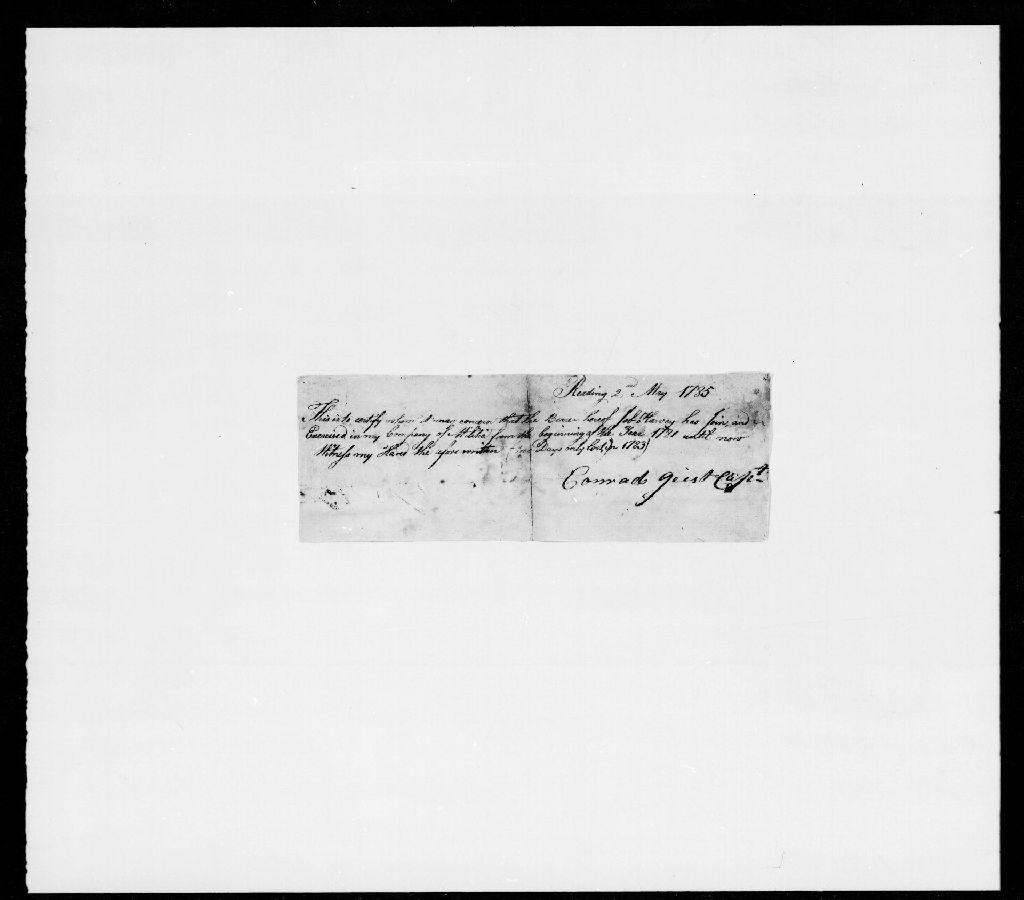 Reading 2nd May 1785
This is to certify whom it may concern that the Bearer hereof Job Harvey has Join, and
Exercised in my Company of Militia from the beginning of the Year 1781 until now
Witness my Hand the afore written Days only 1783)
Conrad Geist Capt